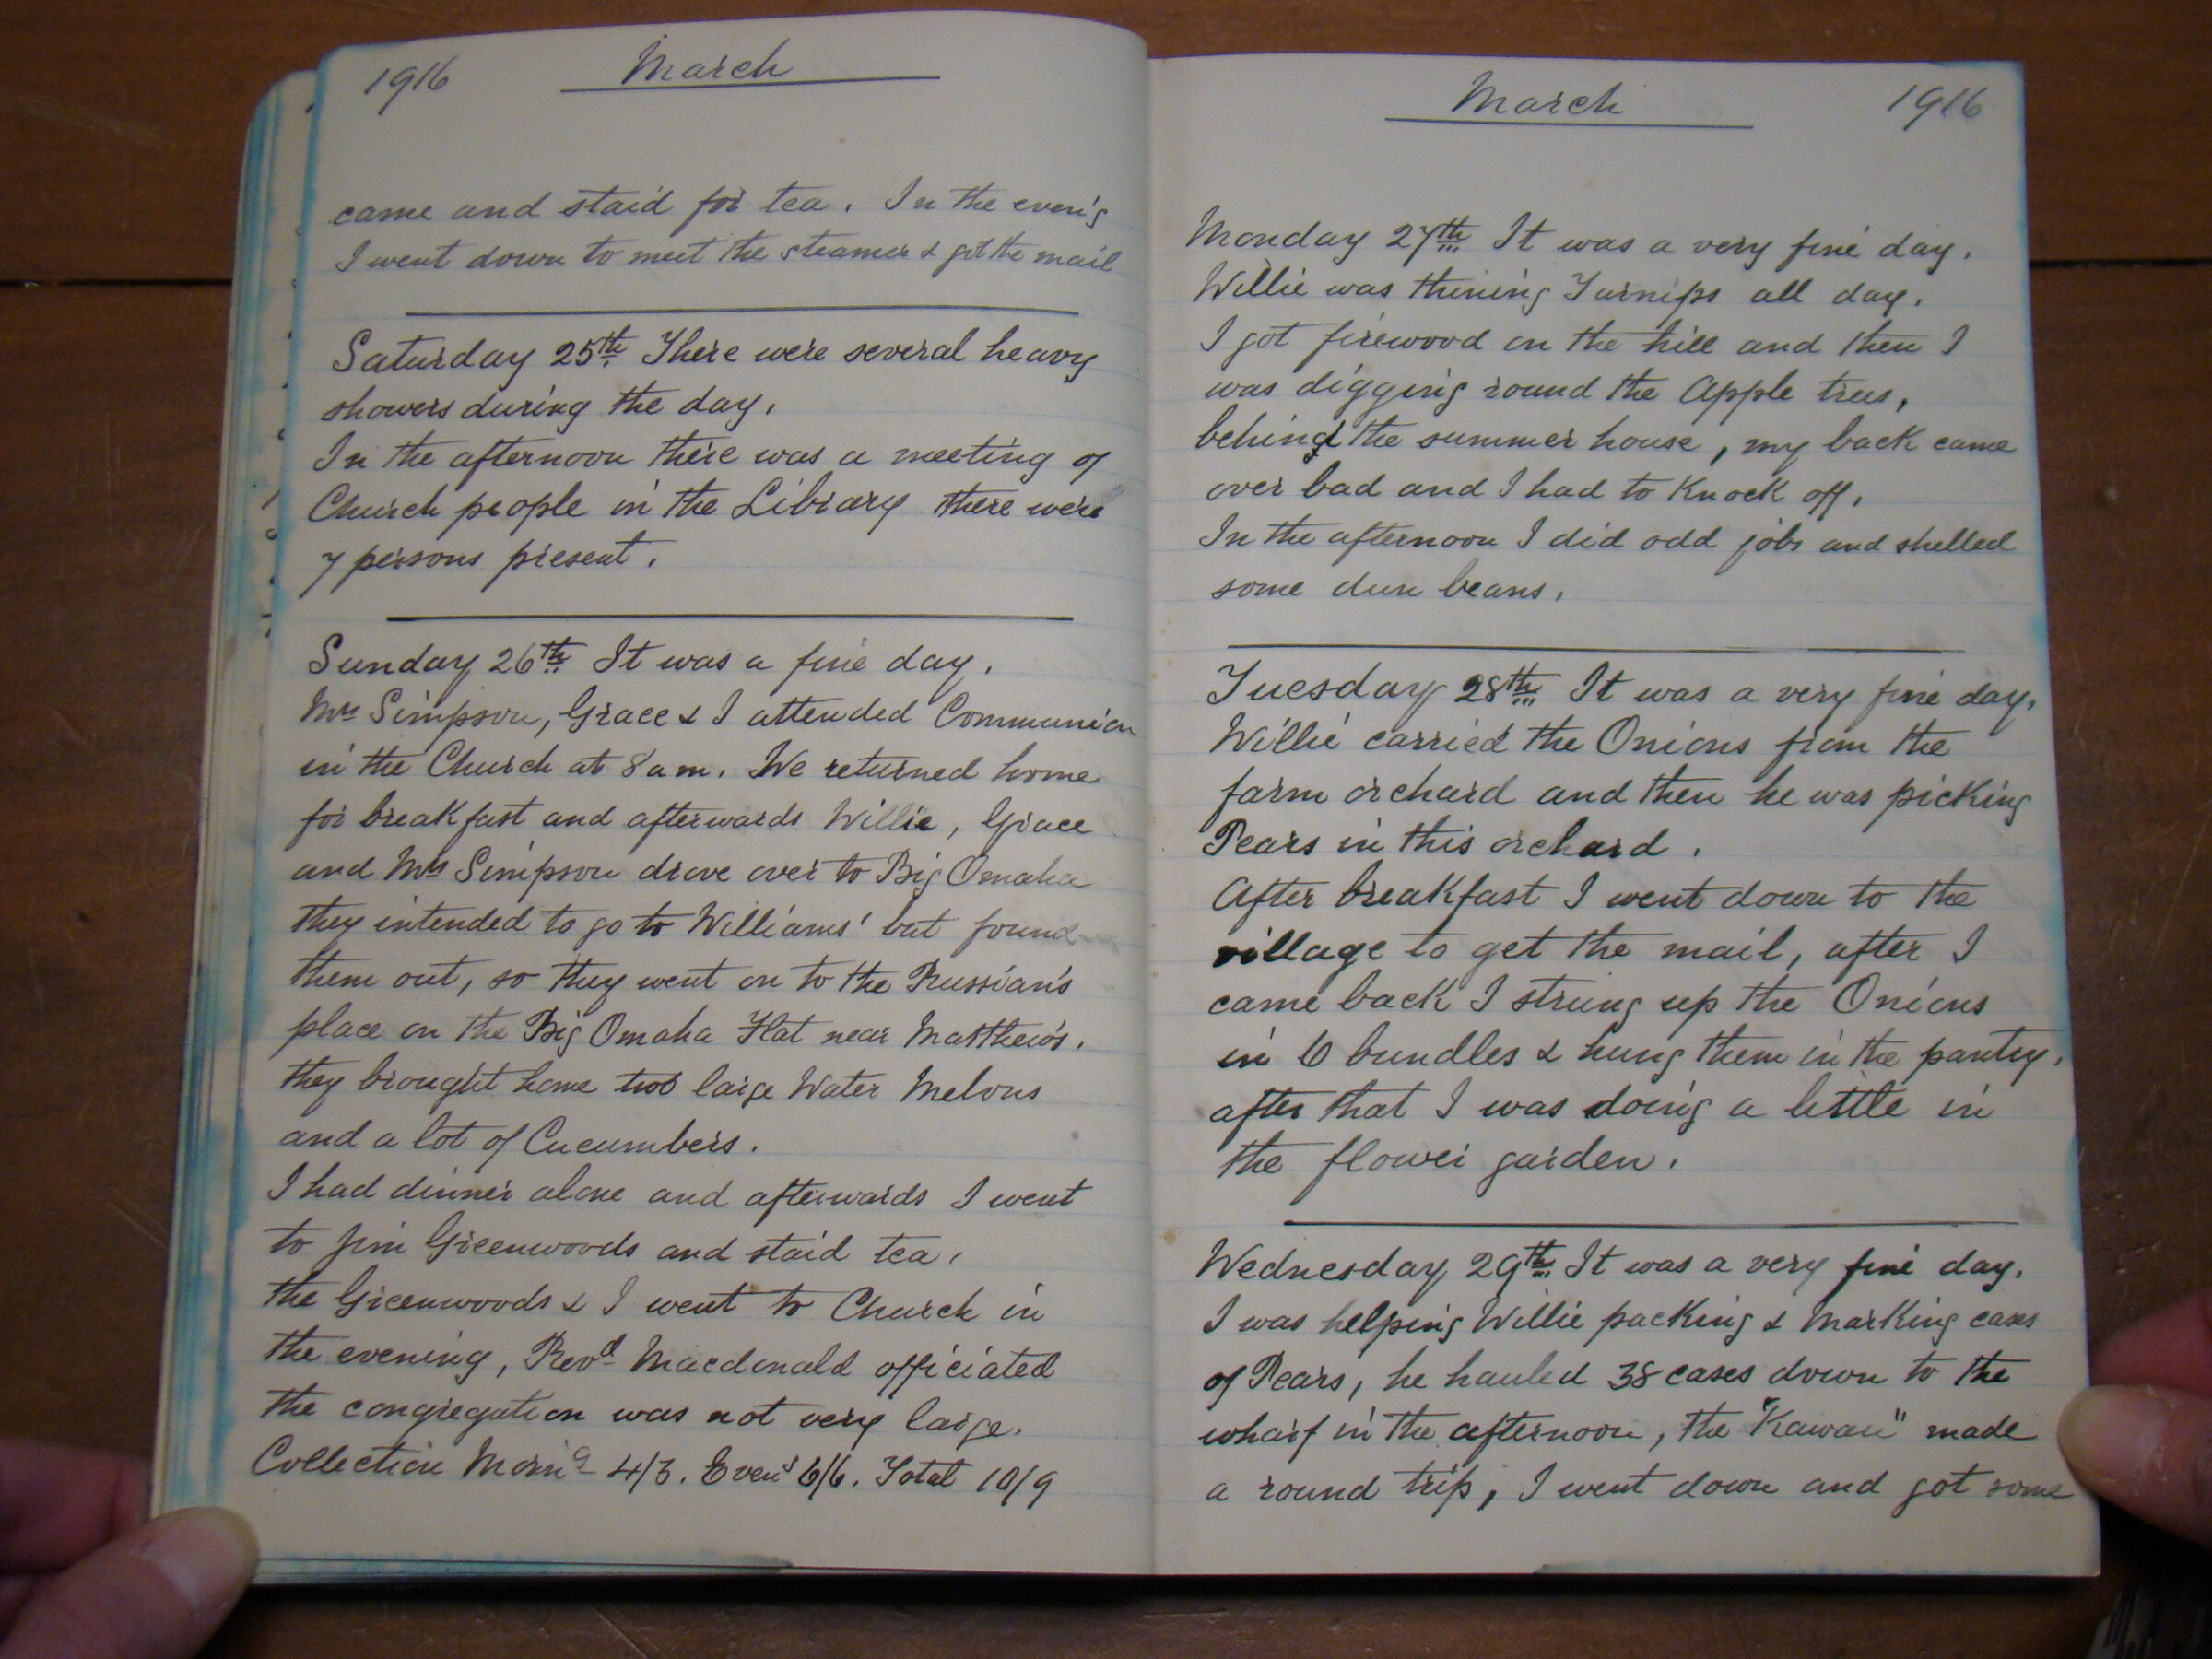 1916 March
came and staid for tea. In the even'g
I went down to meet the steamer & got the mail
Saturday 25th There were several heavy
showers during the day.
In the afternoon there was a meeting of
Church people in the Library there were
7 persons present.
Sunday 26th It was a fine day.
Mrs Simpson, Grace & I attended Communion
in the Church at 8 a m. We returned home
for breakfast and afterwards Willie, Grace
and Mrs Simpson drove over to Big Omaha
they intended to go to Williams' but found
them out, so they went on to the Russian's
place on the Big Omaha Flat near Matthew's.
they brought home two large Water Melons
and a lot of Cucumbers.
I had dinner alone and afterwards I went
to Jim Greenwoods and staid tea.
the Greenwoods & I went to Church in
the evening, Revd Macdonald officiated
the congregation was not very large.
Collection Morng 4/3. Eveng 6/6. Total 10/9
March 1916
Monday 27th It was a very fine day.
Willie was thining Turnips all day.
I got firewood on the hill and then I
was digging round the Apple trees,
behind the summer house, my back came
over bad and I had to Knock off.
In the afternoon I did odd jobs and shelled
some dun beans.
Tuesday 28th It was a very fine day.
Willie carried the Onions from the
farm orchard and then he was picking
Pears in this orchard.
After breakfast I went down to the
village to get the mail, after I
came back I strung up the Onions
in 6 bundles & hung them in the pantry.
after that I was doing a little in
the flower garden.
Wednesday 29th It was a very fine day.
I was helping Willie packing & Marking cases
of Pears, he hauled 38 cases down to the
wharf in the afternoon, the "Kawau" made
a round trip, I went down and got some